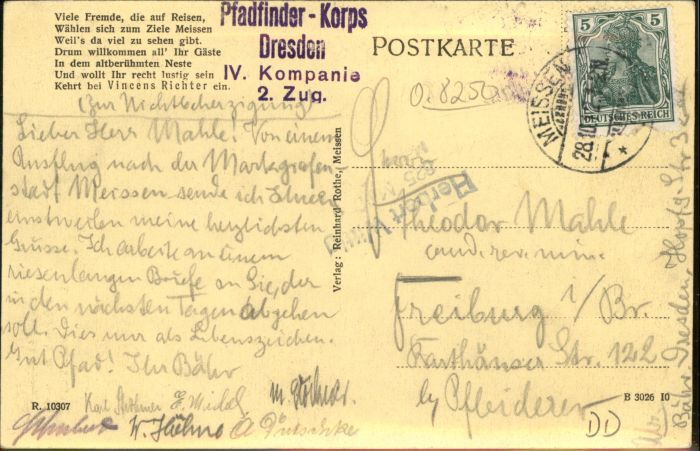 Viele Fremde, die auf Reisen,
Wählen sich zum Ziele Meissen
Weil's da viel zu sehen gibt.
Drum willkommen all' Ihr Gäste
In dem altberühmten Neste
Und wollt Ihr recht lustig sein
Kehrt bei Vincenz Richter ein.
Pfadfinder-Korps
Dresden
IV. Kompanie
2. Zug.
POSTKARTE
5 5
DEUTSCHES REICH
MEISSEN
28.10
(Zur Nichtbeherzigung)
Lieber Herr Mahle! Von einem
Ausflug nach der Markgrafen-
stadt Meissen sende ich Ihnen
einstweilen meine herzlichsten
Grüsse. Ich arbeite an einem
riesenlangen Briefe an Sie, der
in den nächsten Tagen abgehen
soll. Dies nur als Lebenszeichen.
Gut Pfad! Ihr Bähr
R. 10307
Verlag: Reinhard Rothe, Meissen
Herrn
Theodor Mahle
Freiburg i/Br.
Karthäuser Str. 122
by Pfleiderer
B 3026 10
DD
Bähr Dresden